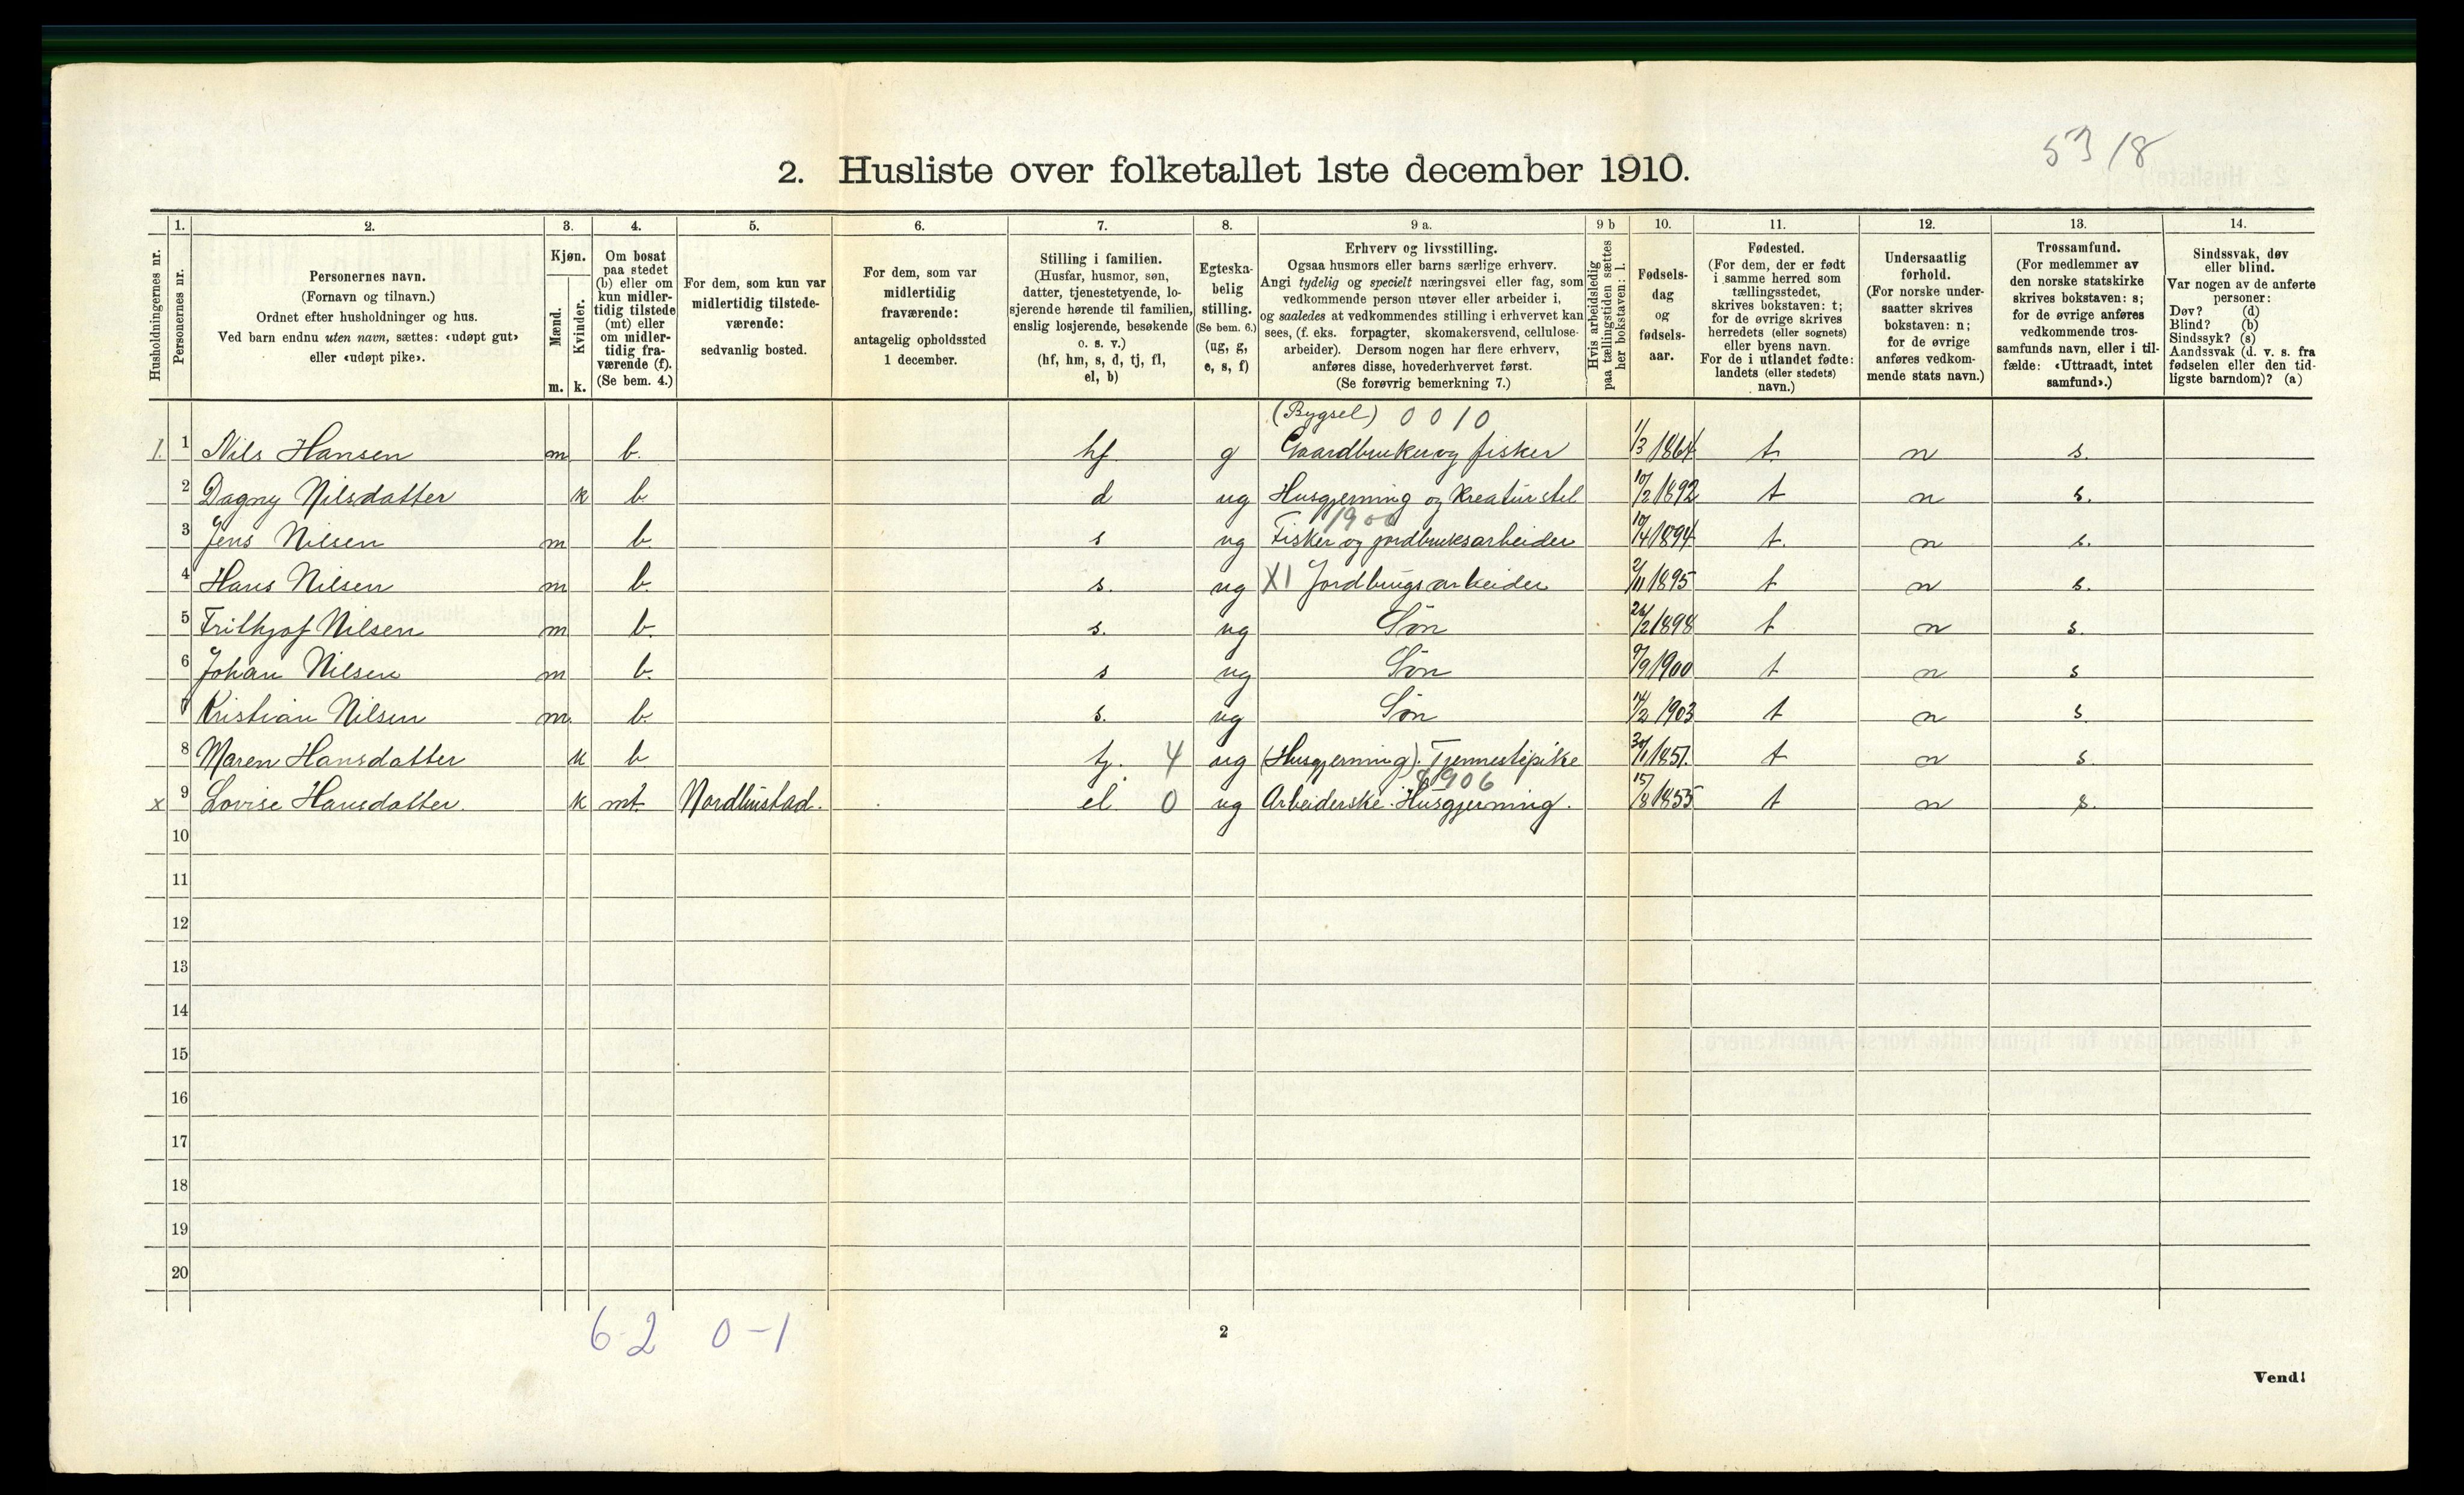 53/8
2. Husliste over folketallet 1ste december 1910.
Husholdningernes nr.
1.
Personernes nr.
2.
Personernes navn.
(Fornavn og tilnavn.)
Ordnet efter husholdninger og hus.
Ved barn endnu uten navn, sættes: «udøpt gut»
eller «udøpt pike».
3.
Kjøn.
Mænd.
Kvinder.
m. k.
4.
Om bosat
paa stedet
(b) eller om
kun midler-
tidig tilstede
(mt) eller
om midler-
tidig fra-
værende (f).
(Se bem. 4.)
5.
For dem, som kun var
midlertidig tilstede-
værende:
sedvanlig bosted.
6.
For dem, som var
midlertidig
fraværende:
antagelig opholdssted
1 december.
7.
Stilling i familien.
(Husfar, husmor, søn,
datter, tjenestetyende, lo-
sjerende hørende til familien,
enslig losjerende, besøkende
o. s. v.)
(hf, hm, s, d, tj, fl,
el, b)
8.
Egteska-
belig
stilling.
(Se bem. 6.)
(ug, g,
e, s, f)
9 a.
Erhverv og livsstilling.
Ogsaa husmors eller barns særlige erhverv.
Angi tydelig og specielt næringsvei eller fag, som
vedkommende person utøver eller arbeider i,
og saaledes at vedkommendes stilling i erhvervet kan
sees, (f. eks. forpagter, skomakersvend, cellulose-
arbeider). Dersom nogen har flere erhverv,
anføres disse, hovederhvervet først.
(Se forøvrig bemerkning 7.)
9 b
Hvis arbeidsledig
paa tællingstiden sættes
her bokstaven: l.
10.
Fødsels-
dag
og
fødsels-
aar.
11.
Fødested.
(For dem, der er født
i samme herred som
tællingsstedet,
skrives bokstaven: t;
for de øvrige skrives
herredets (eller sognets)
eller byens navn.
For de i utlandet fødte:
landets (eller stedets)
navn.)
12.
Undersaatlig
forhold.
(For norske under-
saatter skrives
bokstaven: n;
for de øvrige
anføres vedkom-
mende stats navn.)
13.
Trossamfund.
(For medlemmer av
den norske statskirke
skrives bokstaven: s;
for de øvrige anføres
vedkommende tros-
samfunds navn, eller i til-
fælde: «Uttraadt, intet
samfund».)
14.
Sindssvak, døv
eller blind.
Var nogen av de anførte
personer:
Døv? (d)
Blind? (b)
Sindssyk? (s)
Aandssvak (d. v. s. fra
fødselen eller den tid-
ligste barndom)? (a)
(Bygsel) 0010
1. 1 Nils Hansen m b. hf g Gaardbruker og fisker 1/3 1864 t. n s.
2 Dagny Nilsdatter k b d ug Husgjerning og Kreaturstel 10/2 1892 t n s.
1900
3 Jens Nilsen m b. s ug Fisker og jordbruksarbeider 10/4 1894 t. n s.
4 Hans Nilsen m b. s. ug X1 Jordbrugsarbeider 2/11 1895 t n s.
5 Frithjof Nilsen m b. s. ug Søn 26/2 1898 t n s.
6 Johan Nilsen m b. s ug Søn 9/9 1900 t n s
7 Kristian Nilsen m. b. s. ug Søn 14/2 1903 t n s
8 Maren Hansdatter k b tj. 4 ug (Husgjerning). Tjennestepike 30/1 1851. t n s.
1906
x 9 Lovise Hansdatter. k mt Nordbustad. el. 0 ug Arbeiderske. Husgjerning. 15/8 1855 t n s.
10
11
12
13
14
15
16
17
18
19
20
6-2 0-1
2
Vend!